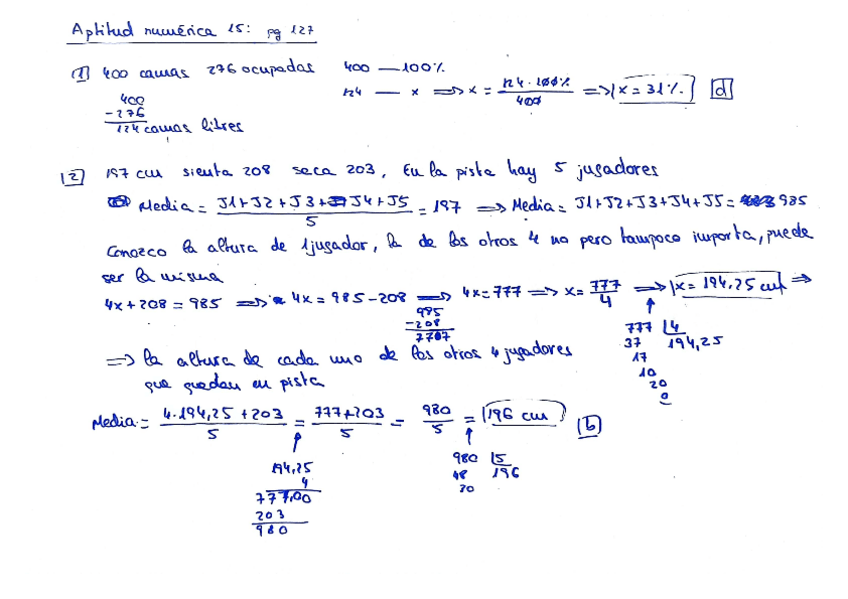 Aptitud numérica 15: pg 127
1) 400 camas 276 ocupadas 400 — 100%
124 — x ⟹ x = 124 · 100% / 400 ⟹ x = 31%. d
400
-276
124 camas libres
2 197 cm sienta 208 seca 203, En la pista hay 5 jugadores
Media = J1+J2+J3+J4+J5 / 5 = 197 ⟹ Media = J1+J2+J3+J4+J5 = 985
Conozco la altura de 1 jugador, la de los otros 4 no pero tampoco importa, puede
ser la misma
4x+208 = 985 ⟹ 4x = 985-208 ⟹ 4x=777 ⟹ x = 777 / 4 ⟹ x = 194,25 cm ⟹
985
-208
777 4
37 194,25
17
10
20
0
⟹ la altura de cada uno de los otros 4 jugadores
que quedan en pista
Media = 4·194,25 + 203 / 5 = 777+203 / 5 = 980 / 5 = 196 cm b
194,25
4
777,00
203
980
980 5
48 196
30